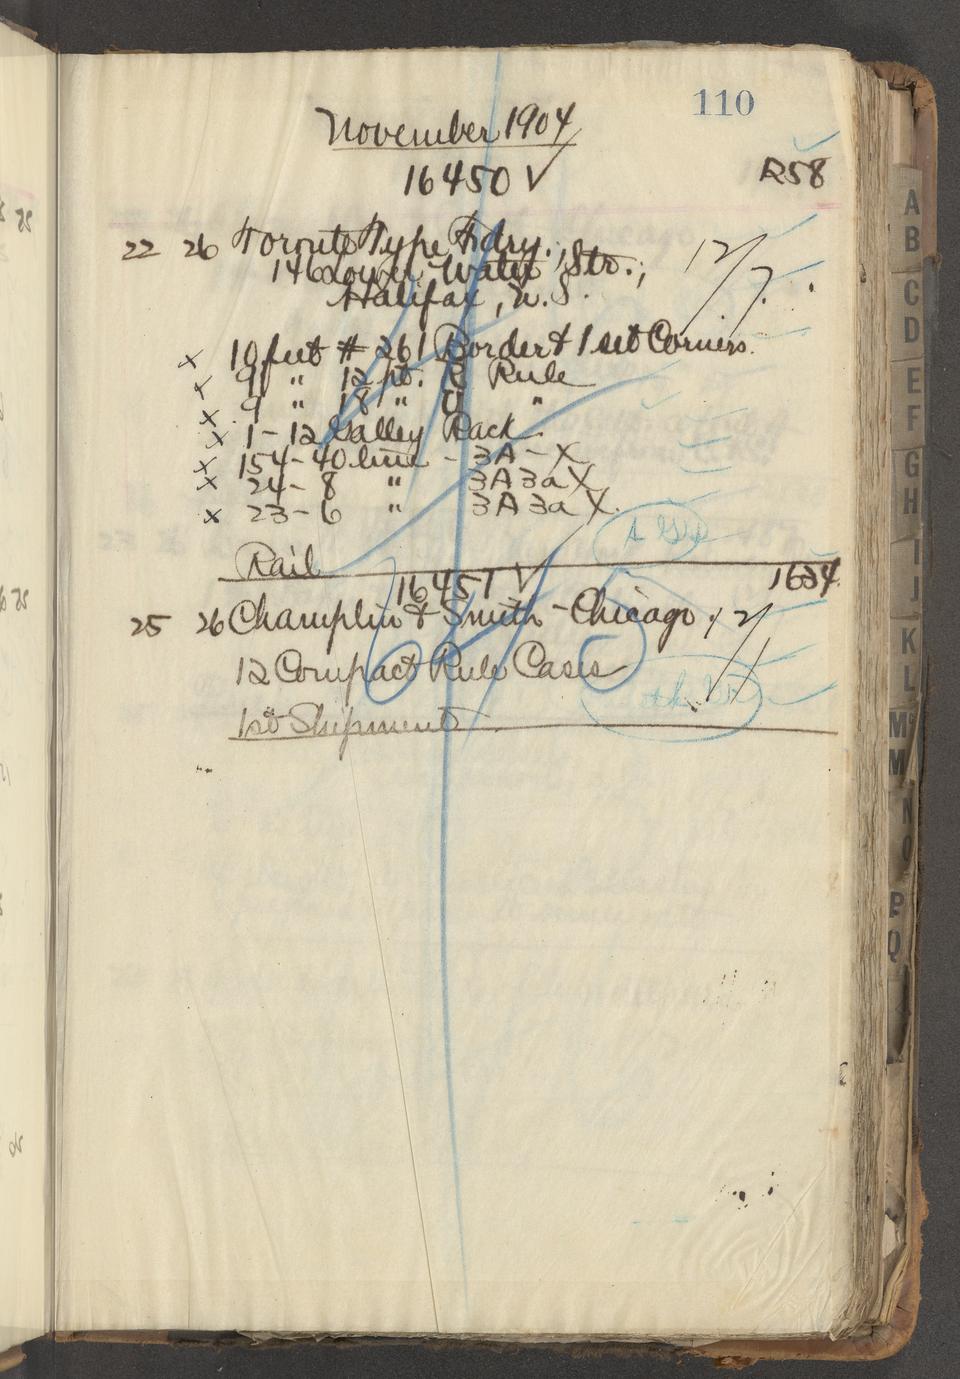 110
November 1904
16450 √ R58
22 26 Toronto Type Fdry.
146 Lower Water Str., 12/7.
Halifax, N.S.
x 10 feet # 261 Border & 1 set Corners.
x 9 " 12 pt. Rule
x 9 " 18 " "
x 1-12 Galley Rack
x 154-40 line - 3A - X
x 24- 8 " 3A 3a X
x 23-6 " 3A 3a X.
Rail
16451 √ 1634
25 26 Champlin & Smith - Chicago.
12 Compact Rule Cases
1st Shipment
A
B
C
D
E
F
G
H
I
J
K
L
Mc
M
N
O
P
Q